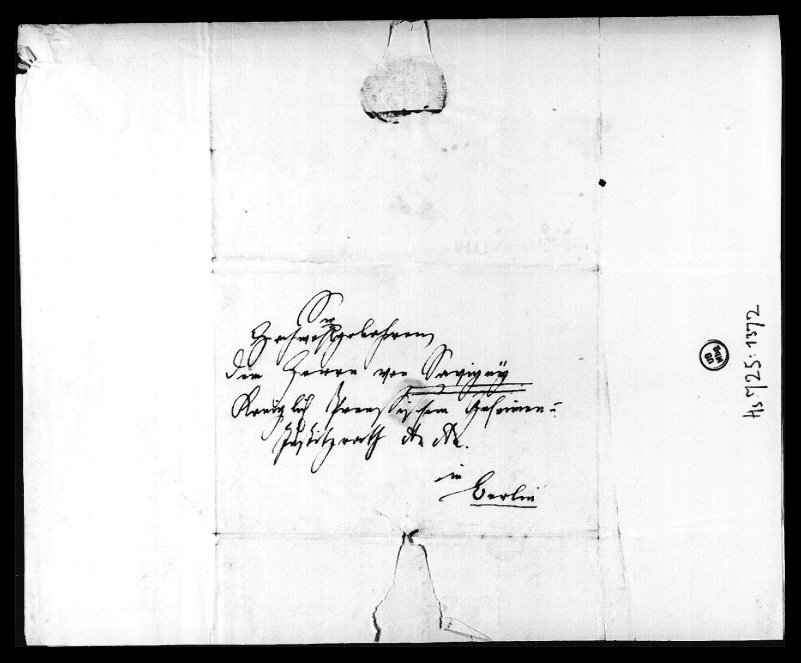 Sr
Hochwohlgebohren
dem Herrn von Savigny
Königlich Preussischem Geheimen-
Justitzrath
in
Berlin
UB
MBG
Hs 725:1372